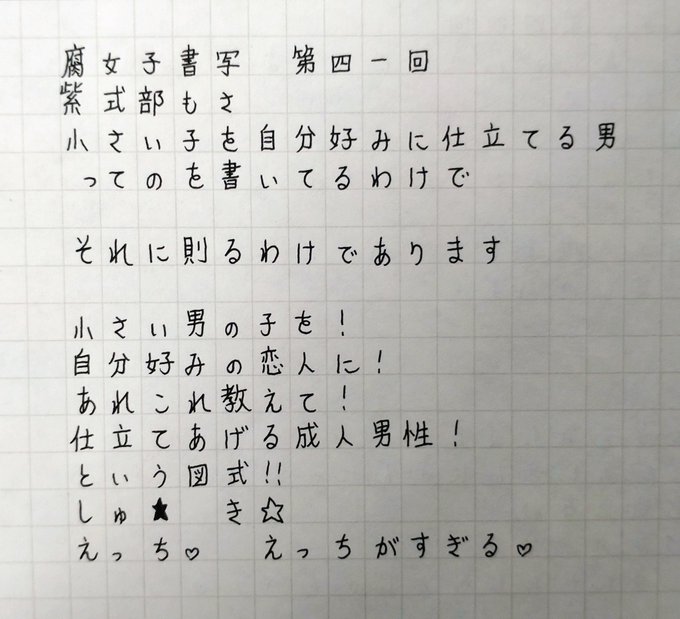 腐女子書写　第四一回
紫式部もさ
小さい子を自分好みに仕立てる男
ってのを書いてるわけで
それに則るわけであります
小さい男の子を！
自分好みの恋人に！
あれこれ教えて！
仕立てあげる成人男性！
という図式!!
しゅ★　き☆
えっち♡　えっちがすぎる♡